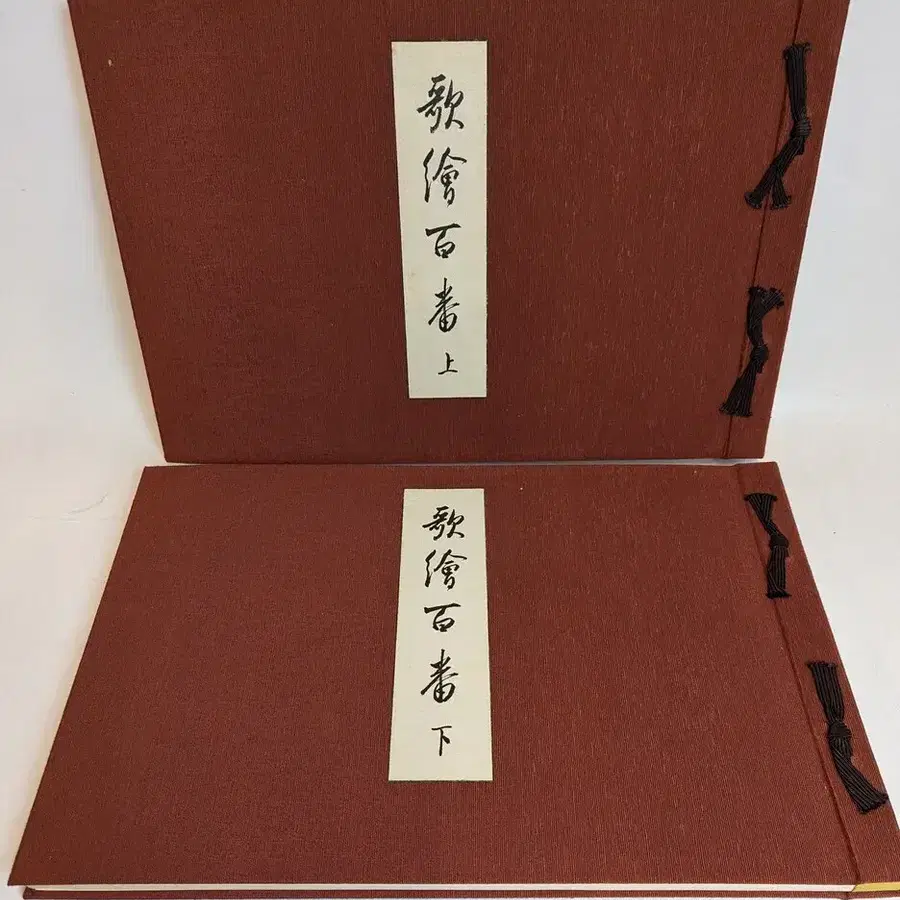 歌繪百番 上
歌繪百番 下